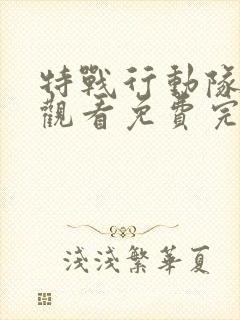 特戰行動隊
觀看免費完
淺淺繁華夏